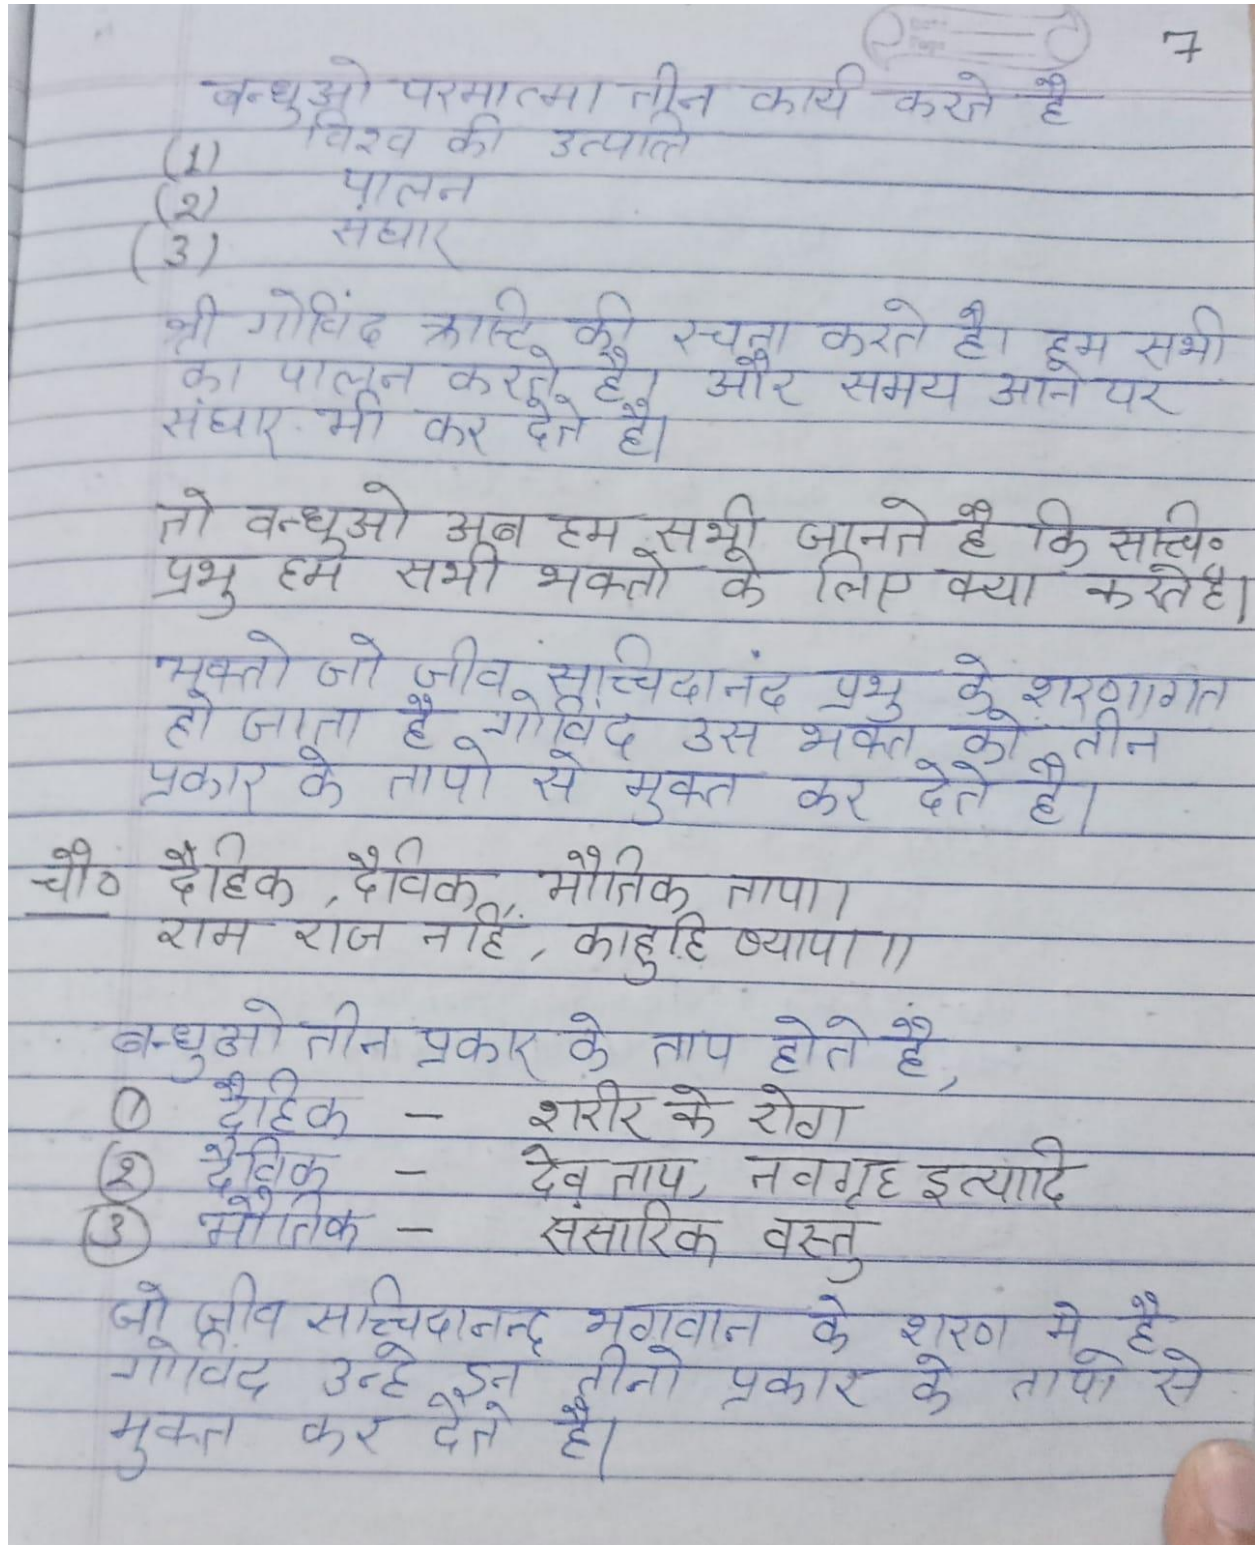 7
बन्धुओ परमात्मा तीन कार्य करते है
(1) विश्व की उत्पत्ति
(2) पालन
(3) संघार
श्री गोविंद की रचना करते है। हम सभी
का पालन करते है। और समय आने पर
संघार भी कर देते है।
तो बन्धुओ अब हम सभी जानते है कि सच्चि॰
प्रभु हम सभी भक्तो के लिए क्या करते है।
भक्तो जो जीव सच्चिदानंद प्रभु के शरणागत
हो जाता है गोविंद उस भक्त को तीन
प्रकार के तापो से मुक्त कर देते है।
चौ॰ दैहिक, दैविक, भौतिक तापा।
राम राज नहिं, काहुहि ब्यापा॥
बन्धुओ तीन प्रकार के ताप होते है,
① दैहिक - शरीर के रोग
② दैविक - देव ताप, नवगृह इत्यादि
③ भौतिक - संसारिक वस्तु
जो जीव सच्चिदानन्द भगवान के शरण मे है
गोविंद उन्हे इन तीनो प्रकार के तापो से
मुक्त कर देते है।